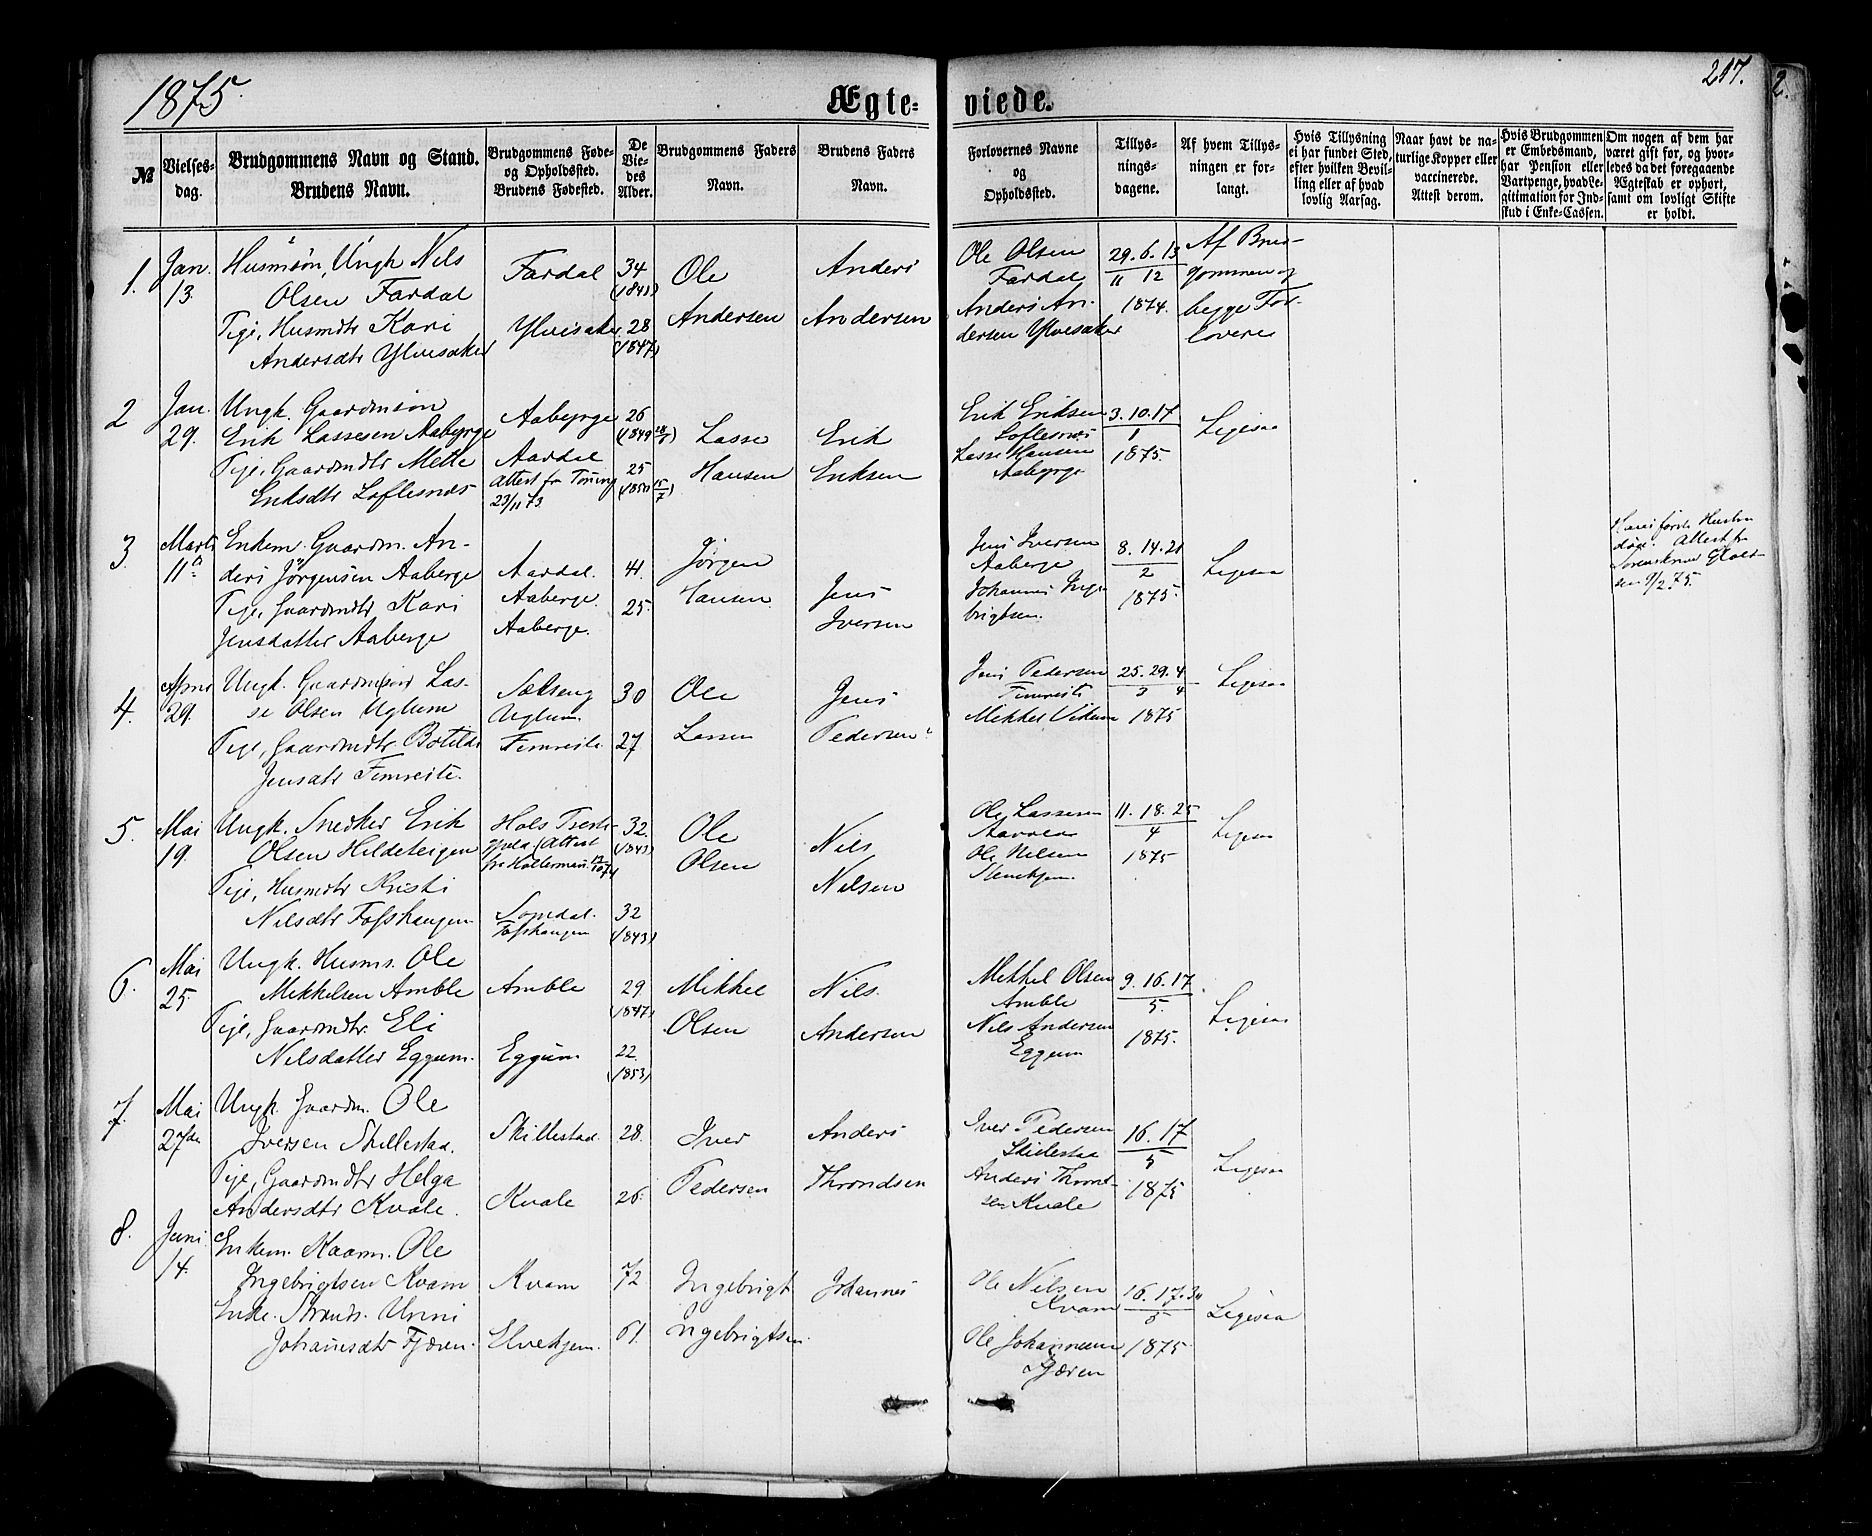 1875.
Ægte-
viede.
217.
2.
№
Vielses-
dag.
Brudgommens Navn og Stand.
Brudens Navn.
Brudgommens Føde-
og Opholdssted.
Brudens Fødested.
De
Vie-
des
Alder.
Brudgommens Faders
Navn.
Brudens Faders
Navn.
Forlovernes Navne
og
Opholdssted.
Tillys-
nings-
dagene.
Af hvem Tillys-
ningen er for-
langt.
Hvis Tillysning
ei har fundet Sted,
efter hvilken Bevil-
ling eller af hvad
lovlig Aarsag.
Naar havt de na-
turlige Kopper eller
vaccinerede.
Attest derom.
Hvis Brudgommen
er Embedsmand,
har Pension eller
Vartpenge, hvad Le-
gitimation for Ind-
skud i Enke-Cassen.
Om nogen af dem har
været gift før, og hvor-
ledes da det foregaaende
Ægteskab er ophørt,
samt om lovligt Skifte
er holdt.
1.
Jan.
13.
Husmsøn, Ungk Nils
Olsen Fardal
Pige, Husmdtr Kari
Andersdtr Ylvisaker
Fardal
Ylvisaker
34
(1841)
28
(1847)
Ole
Andersen
Anders
Andersen
Ole Olsen
Fardal
Anders An-
dersen Ylvesaker
29. 6. 13
11 12
1874.
Af Brud-
gommen og
begge For-
lovere
2
Jan.
29.
Ungk. Gaardmsøn
Erik Lassesen Aabyrge
Pige, Gaardmdtr Mette
Eriksdtr Loflesnes
Aabyrge
Aardal
Attest fra
23/11 73.
26
(1849)
25
(1850 15/7)
Lasse
Hansen
Erik
Eriksen
Erik Eriksen
Loflesnes
Lasse Hansen
Aabyrge
3. 10. 17
1
1875.
Ligesaa
3
Marts
11te
Enkem. Gaardm. An-
ders Jørgensen Aaberge
Pige, Gaardmdtr Kari
Jensdatter Aaberge
Aardal.
Aaberge.
Aaberge.
41.
25.
Jørgen
Hansen
Jens
Iversen
Jens Iversen
Aaberge
Johannes Inge-
brigtsen.
8. 14. 21
2
1875.
Ligesaa
Hans første Hustru
død. Attest fr
Sorenskriver
sen 9/2 75.
4.
April
29.
Ungk. Gaardmsøn Las-
se Olsen Uglum
Pige, Gaardmdtr Botilde
Jensdtr Fimreite.
Sælseng
Uglum.
Fimreite
30
27
Ole
Lassen
Jens
Pedersen
Jens Pedersen
Fimreite
Mikkel Vikum
25. 29. 4
3 4
1875
Ligesaa
5.
Mai
19.
Ungk. Snedker Erik
Olsen Hildeteigen
Pige, Husmdtr Kristi
Nilsdtr Fosshaugen
Hols
(Attest
Sogndal.
Fosshaugen
32.
(1843)
32
(1843)
Ole
Olsen
Nils
Nilsen
Ole Lassesen
Ole Nilsen
11. 18. 25
4
1875
Ligesaa
6.
Mai
25.
Ungk. Husms. Ole
Mikkelsen Amble
Pige, Gaardmdtr. Eli
Nilsdatter Eggum.
Amble
Eggum
29
(1847)
22.
(1853)
Mikkel
Olsen
Nils.
Andersen
Mikkel Olsen
Amble
Nils Andersen
Eggum
9. 16. 17
5.
1875.
Ligesaa
7.
Mai
27de
Ungk. Gaardm. Ole
Iversen Skillestad.
Pige, Gaardmdtr Helga
Andersdtr Kvale.
Skillestad
Kvale
28.
26.
Iver
Pedersen
Anders
Throndsen
Iver Pedersen
Skilestad
Anders Thrond-
sen Kvale
16. 17
5
1875
Ligesaa
8.
Juni
14.
Enkem. Kaarm. Ole
Ingebrigtsen Kvam
Enke. Strands. Unni
Johannesdtr Fjæren.
Kvam
Elvekjem.
72
61.
Ingebrigt
Ingebrigtsen.
Johannes
Ole Nilsen
Kvam
Ole Johannesen
Fjæren
16. 17. 30
5
1875
Ligesaa